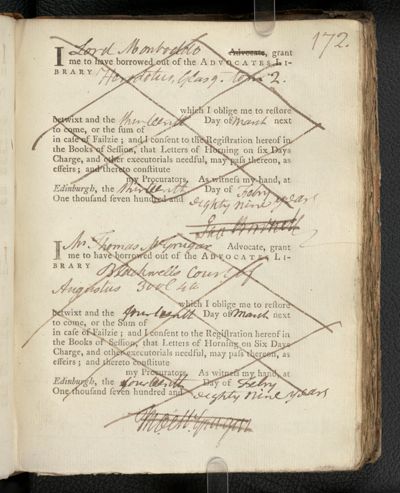 172.
I Lord Monboddo Advocate, grant
me to have borrowed out of the ADVOCATES LI-
BRARY Herodotus, Glasg. tom 2.
which I oblige me to restore
betwixt and the thirteenth Day of March next
to come, or the sum of
in case of Failzie; and I consent to the Registration hereof in
the Books of Session, that Letters of Horning on six Days
Charge, and other executorials needful, may pass thereon, as
effeirs; and thereto constitute
my Procurators. As witness my hand, at
Edinburgh, the thirteenth Day of Febry
One thousand seven hundred and eighty nine years
I Mr. Thomas McGrugar Advocate, grant
me to have borrowed out of the ADVOCATES LI-
BRARY Blackwell's Court of
Augustus 3 vol 4to
which I oblige me to restore
betwixt and the fourteenth Day of March next
to come, or the Sum of
in case of Failzie; and I consent to the Registration hereof in
the Books of Session, that Letters of Horning on six Days
Charge, and other executorials needful, may pass thereon, as
effeirs; and thereto constitute
my Procurators. As witness my hand, at
Edinburgh, the fourteenth Day of Febry
One thousand seven hundred and eighty nine years
Thos McGrugar